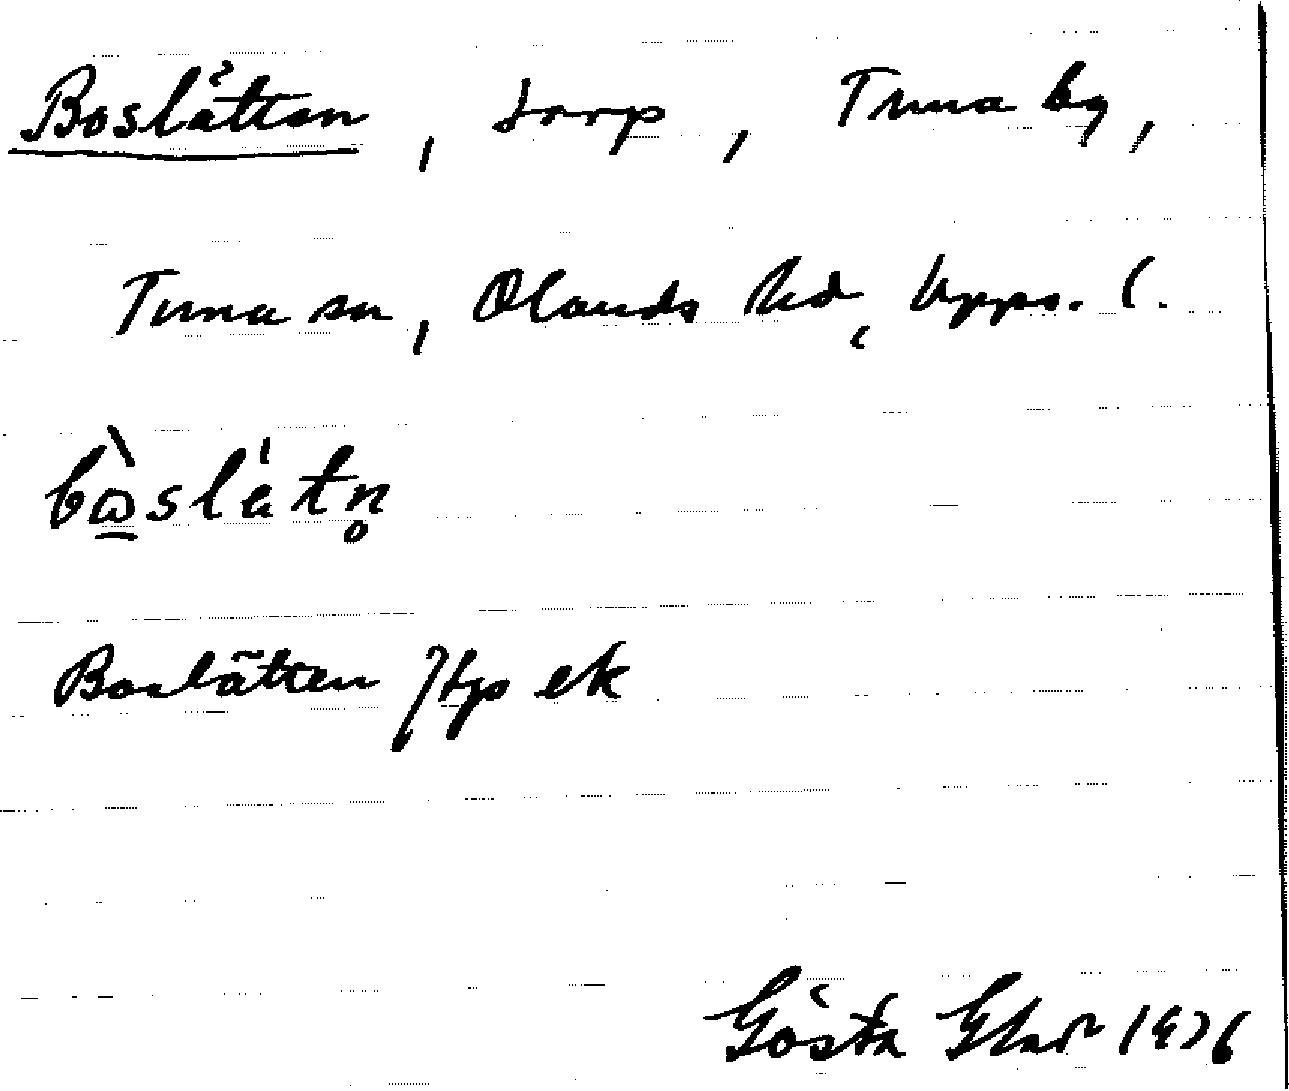 Boslätten, torp, Tuna by,
Tuna sn, Olands hd, Upps. l.
bàslätn̥
Boslätten /tp ek
Gösta 1976